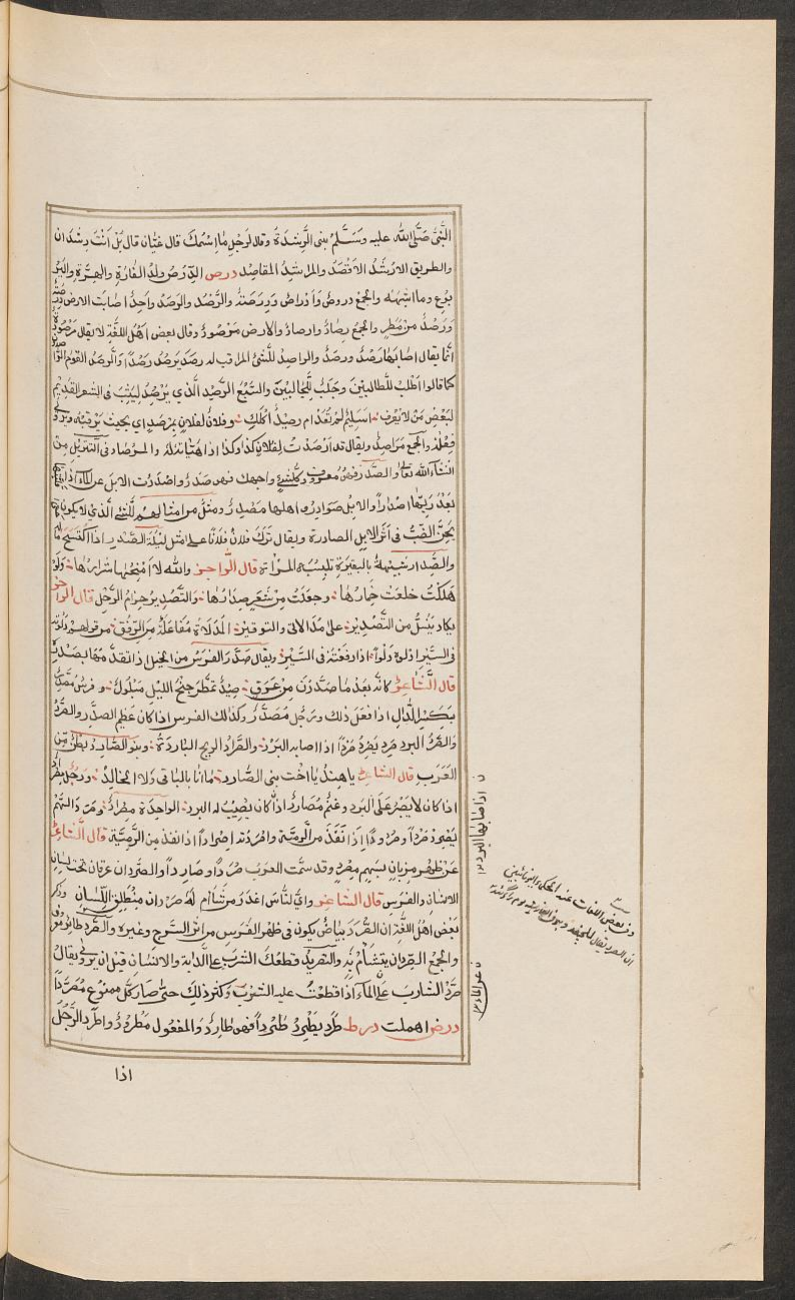 النبيُّ صَلَّى الله عليه وسَلَّم بنى الرِّشدةً وقال لرجلٍ ما اِسْمُكَ قال غيّان قال بَلْ اَنتَ رشدَان
والطريق الارشدُ الاقصَدُ والمراشدُ المقاصِد درص الدِّرصُ ولدُ الفَارَة والهِرَّة واليَرْ
بُوع وما اشبهه والجمعُ دروصٌ وَاَدْراصٌ ودِرَصَةٌ والرَّصْدُ والرَصَدُ واحدٌ اصَابَت الارضَ
ورَصْدٌ من مَطَرٍ والجمعُ رِصَادٌ وارصادٌ والارض مَرْصُودةٌ وقال بعض اهلُ اللُّغَة لا يقال مَرْصُودة
انّما يقال اصَابَهَا رَصْدٌ ورصَدٌ والراصِدُ للشَّئ المراقب له رصَدَ يَرصُدُ رَصْدًا والرصَدُ القومُ
كما قالوا اطَلبٌ للطالبينَ وجَلَبٌ للجالبينَ والسَّبُعُ الرَّصِيد الَّذي يَرْصُدُ لِيَثِبَ في الشعر القديم
لبَعْضِ مَن لا يُعْرف اسليم لم تعدْ ام رصِيدٌ اكلك وفلانٌ لفلانٍ بمَرْصَدٍ اي بحيث يَرْقبُه
فِعْلَه والجمع مَراصِدُ ويقال قد اَرْصَدْتُ لِفلانٍ كذا وكذا اذا هَيّأتَهُ لَهُ والمرصَاد في التنزيل مِن
انشاءَ الله تعالى والصَّدر معروف وكل شئٍ واجهك فهو صَدرٌ واصْدَرْتُ الابلَ عن الماءِ
بَعْدَ رَيِّها اصدارًا والابل صَوَادِرُ واهلها مُصْدِرُون ومثلٌ من امثالهم للشئِ الَّذي لا يكون
يَحِنَّ الضبُّ في اَثَر الابل الصادرة ويقال تَرَكَ فلانٌ فُلانًا على مثل لَيْلَة الصَّدَر اذا اكتسَحَ
والصِّدار شبيهةٌ بالبَقِيرة تلبسُه المرْأة قال الراجز والله لا اَمْنحُها شرارُها ولَوْ
هَلكْتُ خلعَت خِمارَها وجعَلَتْ مِن شَعَرٍ صِدَارَها والتصْدِيرُ حِزامُ الرَّحْل قال الراجز
يكاد ينسلُّ من التَّصْدِير على مُدَالاتي والتوقير المُدَلاةُ مُفَاعَلَةٌ من الرِّفق من قولهم دَلَوْته
في السَّيْر اَدْلوه دَلْوًا اذا رَفَقْتَه في السَّيْر ويقال صَدَّر الفَرسُ من الخيل اذا تقدَّمها بصَدْرِه
قال الشاعر كانّه بَعْدَ ما صَدَّرْنَ مِنْ عَرَقٍ سِيدٌ تمطَّرَ جُنحَ الليل مَبْلُولُ وفرسٌ مُصَدِّرٌ
بكَسْر الدّالِ اذا فعَل ذلك ورجُل مُصَدَّرٌ وكذلك الفرس اذا كان عَظيمَ الصَّدْر والصَّرْدُ
والصَّرَدُ البرد صَرِدَ يَصْرَدُ صَرَدًا اذا اصابه البَرْد والصُرَّادُ الريح الباردةُ وبنو الصَّارِد بطنٌ مِن
العَرب قال الشاعر يا هِندُ يا اخْتَ بنى الصَّارِد مَا انَا بالبَاقي ولا الخالِد ورجُل مِصْرادٌ
اذا كان لا يَصْبِر عَلَى البَرد وغنمٌ مَصَاريدُ اذا كان يُصِيبُ لَه البرد الواحِدَة مِصْرادٌ وصَرِدَ السَّهمُ
يَصْرِدُ صَرَدًا وصُرودًا اِذا نَفَذَ من الرمِيّة واصْردتُه اِصْرادًا اذا انفذ من الرَّمِيَّة وقال الشاعر
عَنْ ظَهْرِ مِزبانٍ بسَهمٍ مصرد وقد سمّت العرب صُرَدًا وصَارِدًا والصُّردان عِرقان تحت لسان
الانسانِ والفرس قال الشاعر واىّ النَّاس اغدَرُ من شآمٍ له صُرَدان مُنطَلِق اللّسان وذكر
بَعْضُ اهْل اللُّغَة ان الصُّرَدَ بَيَاضٌ يكون في ظَهْر الفَرس من اثر السّرج وغيره والصُّرَد طائر معروف
والجمعُ الصِردان يتشاءَمُ به والتصْريد قطعُكَ الشربَ على الدّابة والانسان قبل ان يروى يقال
صُرِّدَ الشاربُ عَن الماءِ اذا قطعْتَ عليه الشربَ وكثر ذلِكَ حتى صَار كلّ ممنُوع مُصَرَّدًا
درض اهملت درط طَردَ يَطرُدُ طَرْدًا فهو طارِدٌ والمفعُول مَطْرُودٌ واطَّرد الرَّجُل
اذا
ن اذا اصابها البرد ١٢
ن عن الماء ١٢